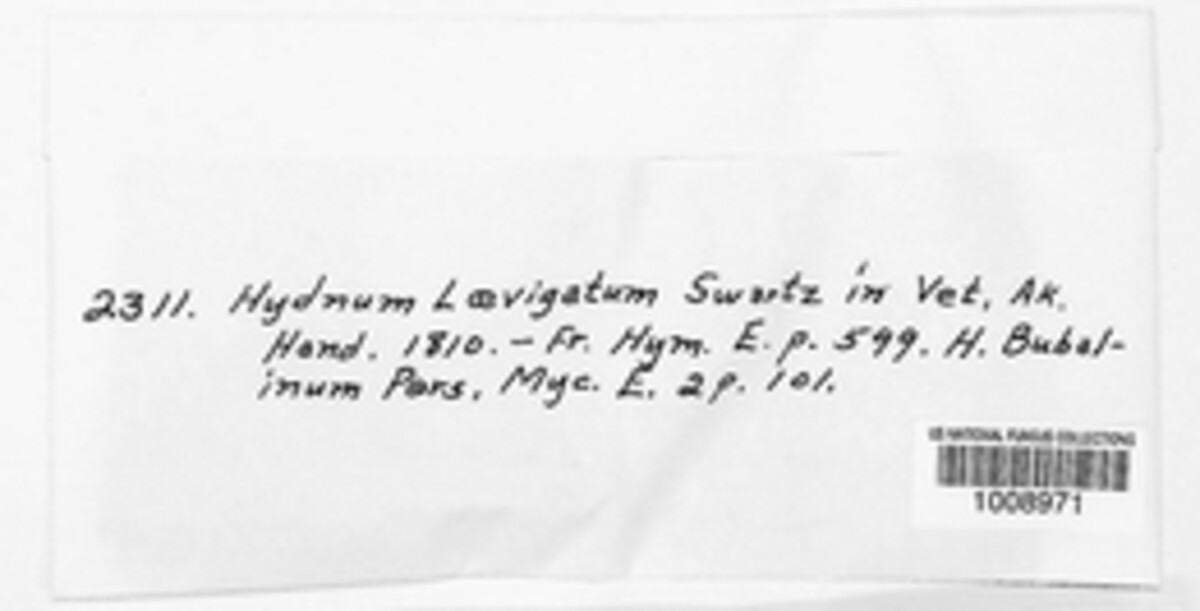 2311. Hydnum Lævigatum Swartz in Vet. Ak.
Hand. 1810. — Fr. Hym. E. p. 599. H. Bubal-
inum Pers. Myc. E. 2 p. 101.
US NATIONAL FUNGUS COLLECTIONS
1008971